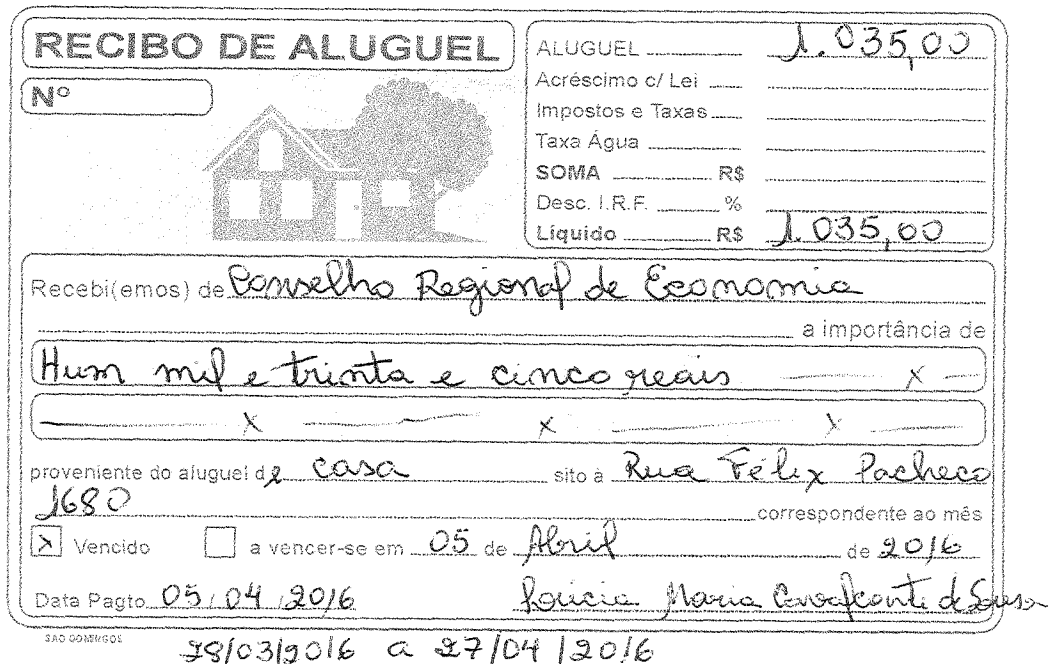 RECIBO DE ALUGUEL
Nº
ALUGUEL 1.035,00
Acréscimo c/ Lei
Impostos e Taxas
Taxa Água
SOMA R$
Desc. I.R.F. %
Líquido R$ 1.035,00
Recebi(emos) de Conselho Regional de Economia
a importância de
Hum mil e trinta e cinco reais x
x x x
proveniente do aluguel de casa sito à Rua Félix Pacheco
1680 correspondente ao mês
x Vencido a vencer-se em 05 de Abril de 2016
Data Pagto 05/04/2016 Lúcia Maria Cavalcante de Sousa
SÃO DOMINGOS
28/03/2016 a 27/04/2016